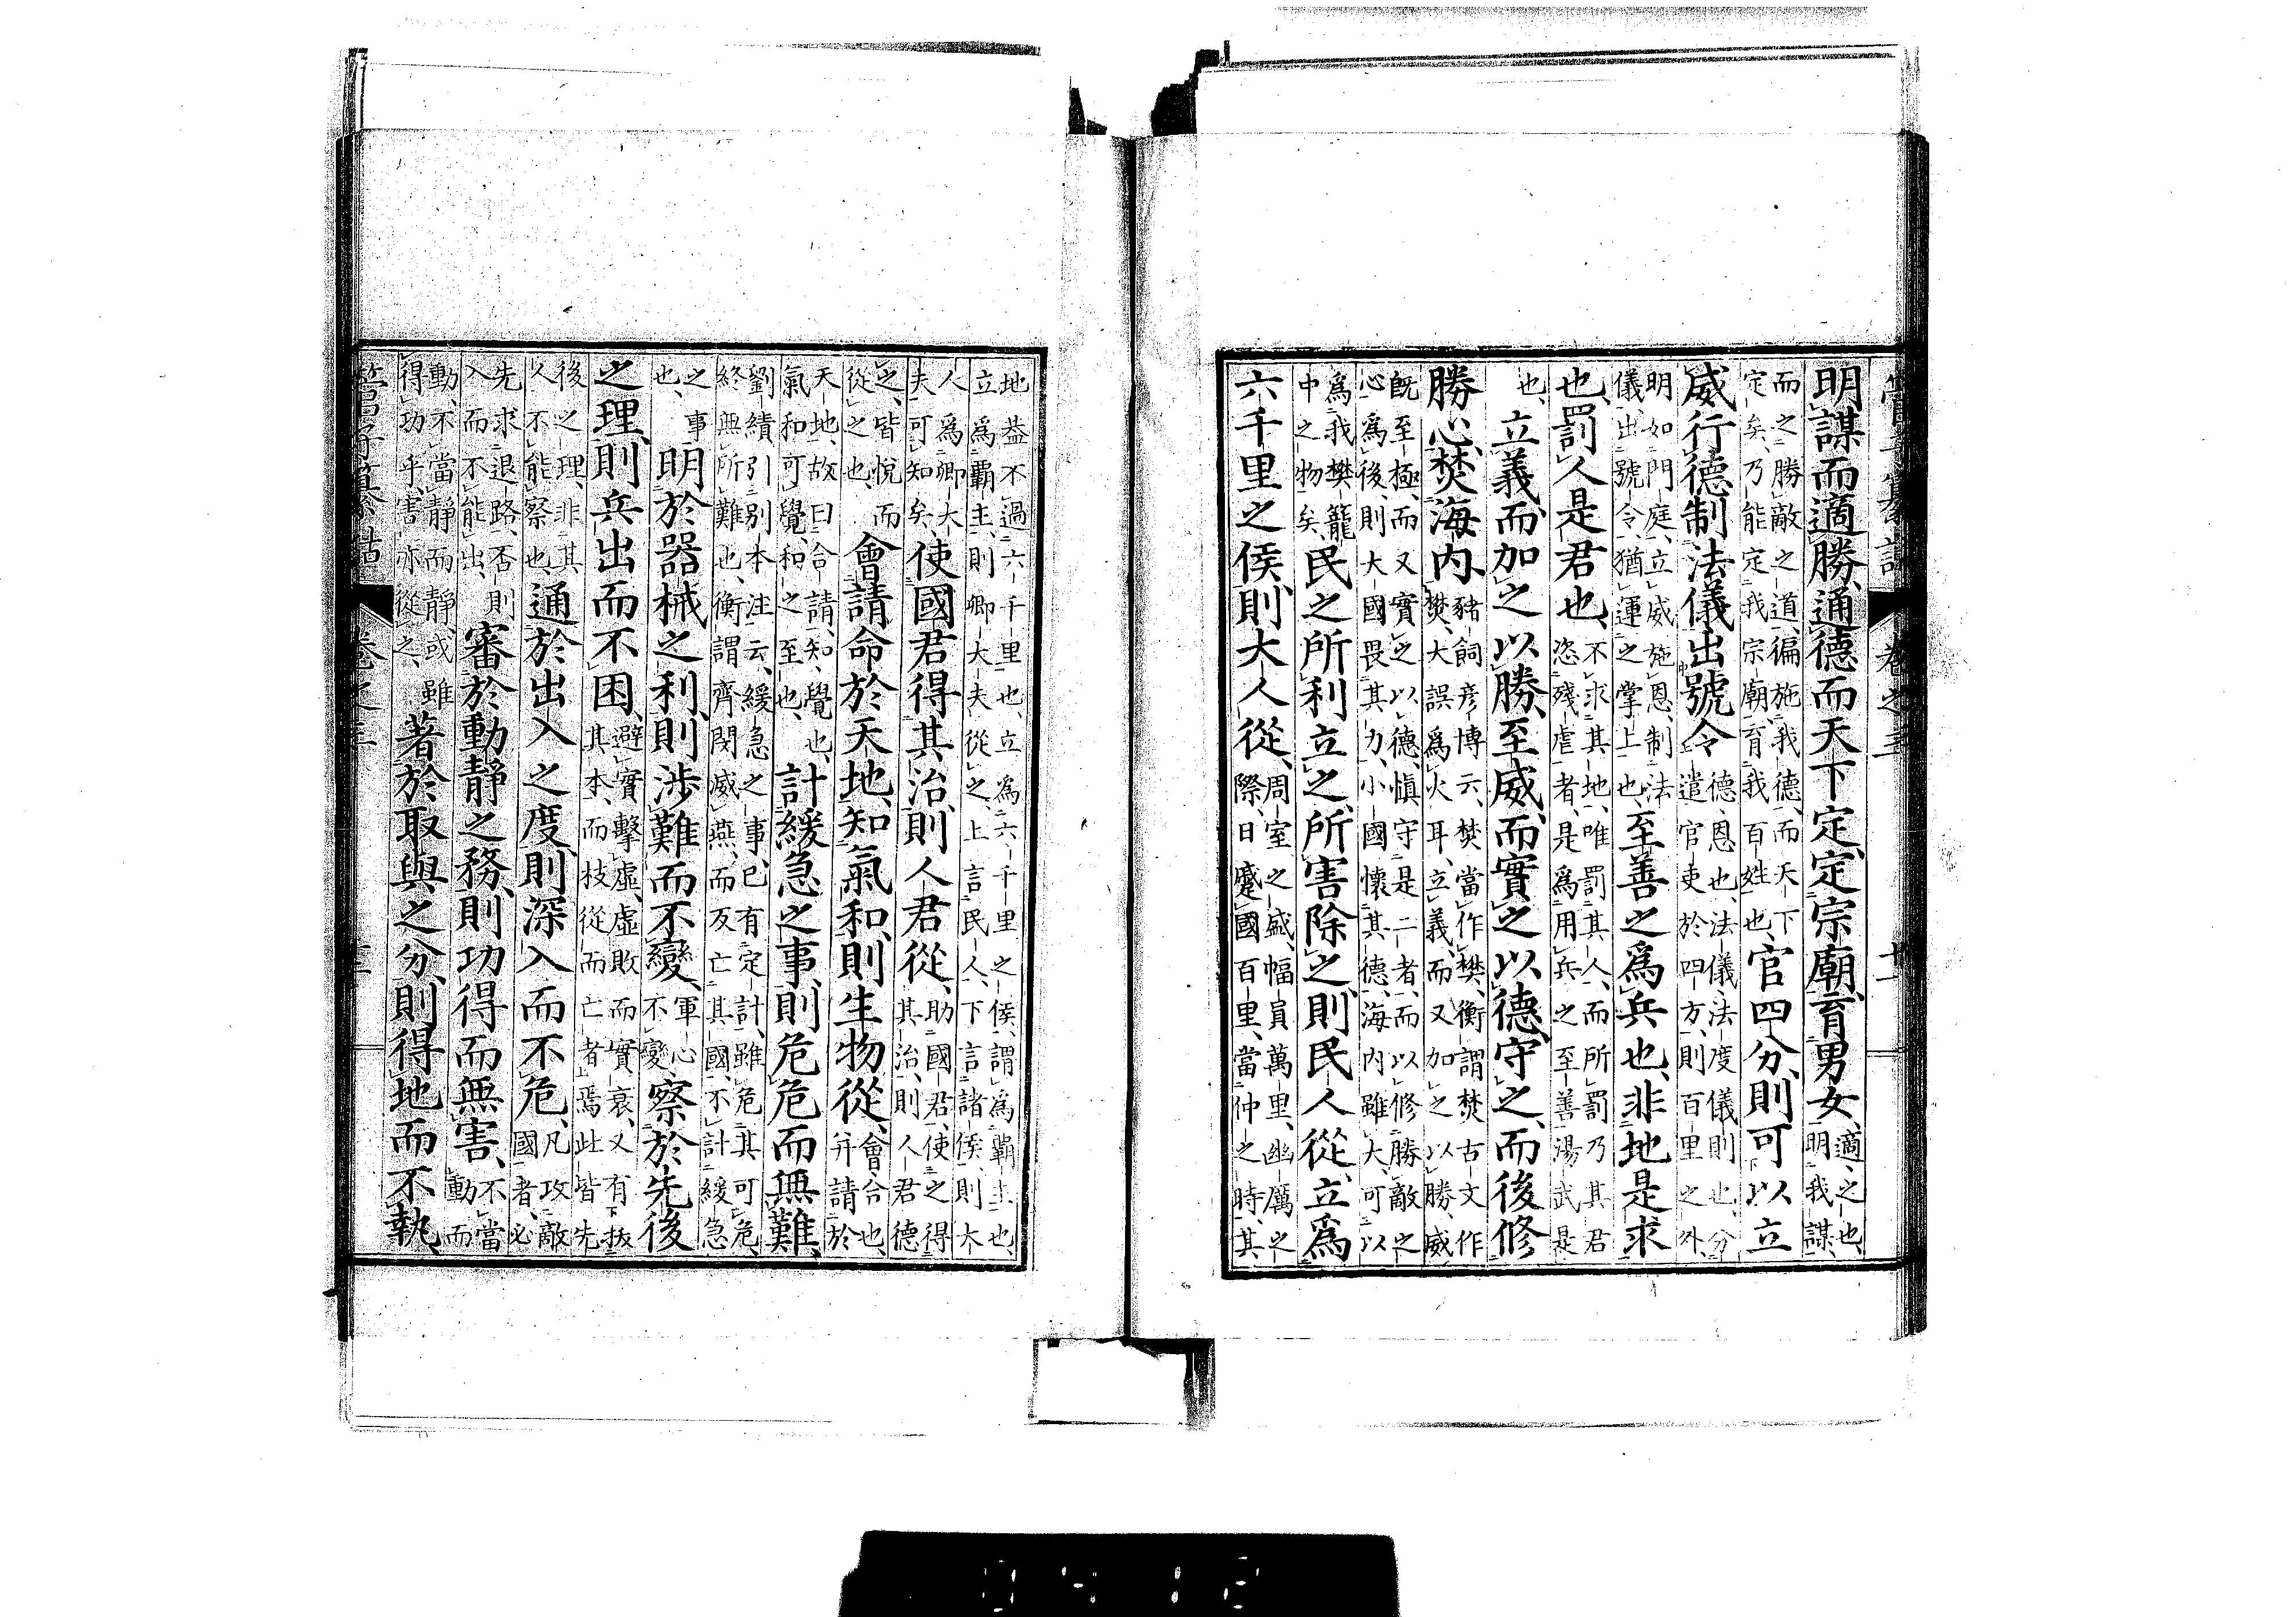 管子纂詁 卷之三 廿一
明謀而適勝、通德而天下定、定宗廟、育男女、適、之也、明我謀
而之勝敵之道、徧施我德、而天下定矣、乃能定我宗廟、育我百姓也、官四分、則可以立
威行德、制法儀、出號令、德、恩也、法儀、法度儀則也、分遣官吏於四方、則百里之外、
明如門庭、立威施恩、制法儀、出號令、猶運之掌上也、至善之爲兵也、非地是求
也、罰人是君也、不求其地、唯罰其人、而所罰乃其君恣殘虐者、是爲用兵之至善、湯武是
也、立義而加之以勝、至威而實之以德、守之而後修
勝心、焚海内、豬飼彦博云、焚當作樊、衡謂焚古文作樊、大誤爲火耳、立義、而又加之以勝、威
既至極、而又實之以德、愼守是二者、而以修勝敵之心爲後、則大國畏其力、小國懷其德、海内雖大、可以
爲我樊籠中之物矣、民之所利立之、所害除之、則民人從、立爲
六千里之侯、則大人從、周室之盛、幅員萬里、幽厲之際、日蹙國百里、當仲之時、其
地益不過六千里也、立爲六千里之侯、謂爲霸主也、立爲霸主、則卿大夫從之、上言民人、下言諸侯、則大
人爲卿大夫可知矣、使國君得其治、則人君從、助國君、使之得其治、則人君德
之、皆悅而從之也、會請命於天地、知氣和、則生物從、會、合也、并請於
天地、故曰合請、知、覺也、氣和可覺、和之至也、計緩急之事、則危危而無難、
劉績引別本注云、緩急之事、已有定計、雖危其可危、終無所難也、衡謂齊閔滅燕、而反亡其國、不計緩急
之事也、明於器械之利、則涉難而不變、軍心不變、察於先後
之理、則兵出而不困、避實擊虛、虛敗而實衰、又有拔其本、而枝從而亡者焉、此皆先
後之理、非其人不能察也、通於出入之度、則深入而不危、凡攻敵國者、必
先求退路、否則入而不能出、審於動靜之務、則功得而無害、不當動而
動、不當靜而靜、或雖得功乎、害亦從之、著於取與之分、則得地而不執、
管子纂詁 卷之三